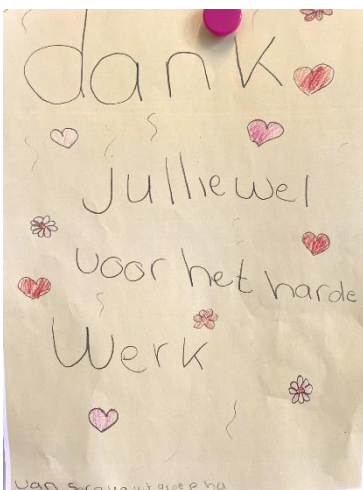 dank
Julliewel
voor het harde
Werk
van uit groep